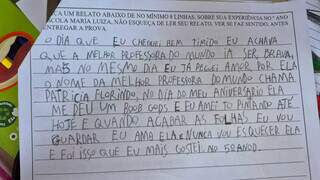 UM RELATO ABAIXO DE NO MÍNIMO 8 LINHAS, SOBRE SUA EXPERIÊNCIA NO 5º ANO
ESCOLA MARIA LUIZA, NÃO ESQUEÇA DE LER SEU RELATO, VER SE FAZ SENTIDO, ANTES
ENTREGAR A PROVA.
O DIA QUE EU CHEGUEI BEM TIMIDO EU ACHAVA
QUE A MELHOR PROFESSORA DO MUNDO IA SER BRAVA,
MAIS NO MESMO DIA EU JÁ PEGUEI AMOR POR ELA
O NOME DA MELHOR PROFESSORA DO MUNDO CHAMA
PATRICIA FLORINDO, NO DIA DO MEU ANIVERSARIO ELA
ME DEU UM BOOB GODS E EU AMEI TO PINTANDO ATÉ
HOJE E QUANDO ACABAR AS FOLHAS EU VOU
GUARDAR EU AMO ELA E NUNCA VOU ESQUESER ELA
E FOI ISSO QUE EU MAIS GOSTEI NO 5O ANO.